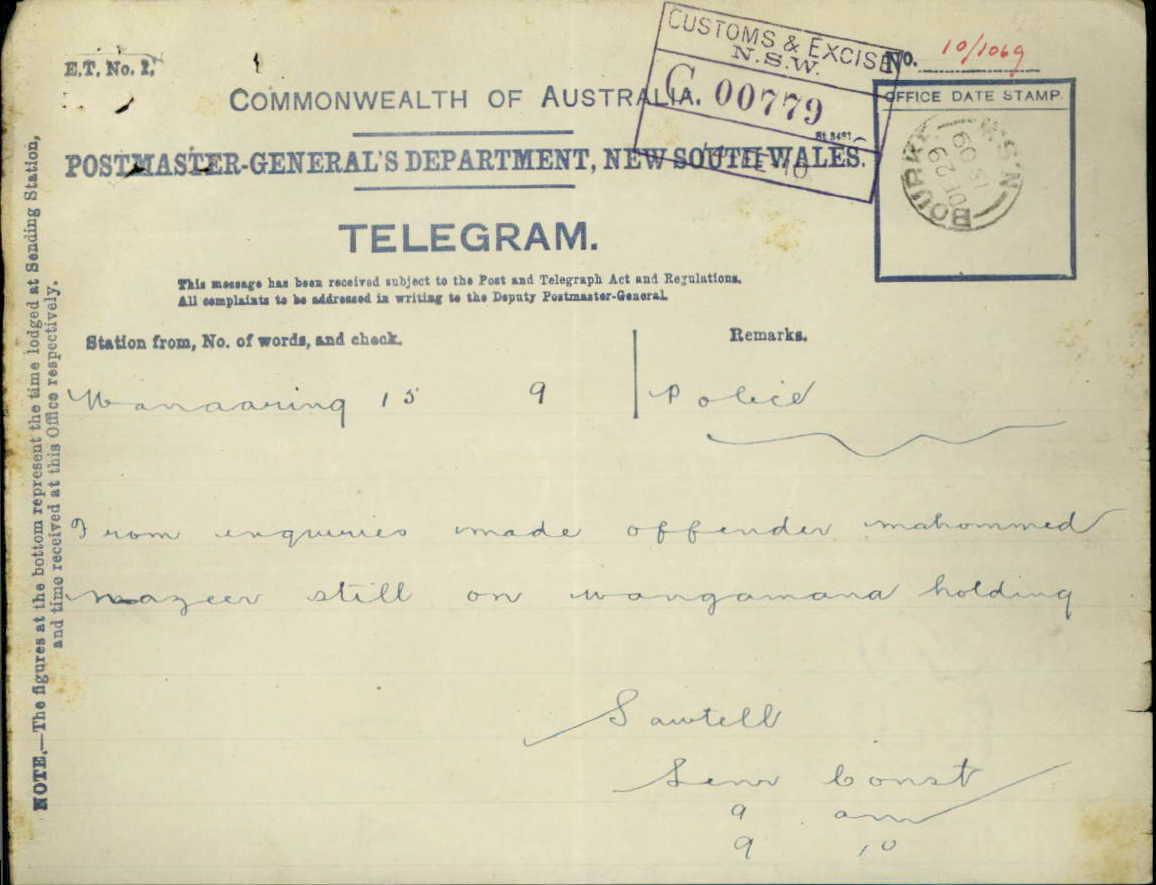 CUSTOMS & EXCISE
N.S.W.
C 00779
E.T. No. 2,
No. 10/1069
COMMONWEALTH OF AUSTRALIA.
OFFICE DATE STAMP.
BOURKE
N.S.W
POSTMASTER-GENERAL'S DEPARTMENT, NEW SOUTH WALES.
TELEGRAM.
This message has been received subject to the Post and Telegraph Act and Regulations.
All complaints to be addressed in writing to the Deputy Postmaster-General.
Station from, No. of words, and check.
Remarks.
Wanaaring 15 9 Police
From enquiries made offender mahommed
nazeer still on wangamana holding
Sawtell
Senr Const
9 am
9 10
NOTE.—The figures at the bottom represent the time lodged at Sending Station,
and time received at this Office respectively.